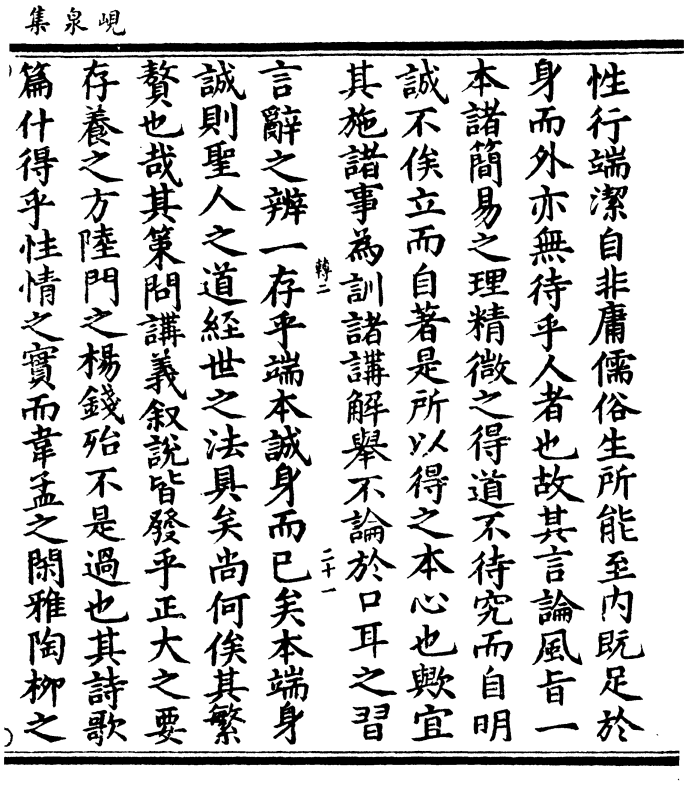 峴泉集
性行端潔自非庸儒俗生所能至内既足於
身而外亦無待乎人者也故其言論風旨一
本諸簡易之理精微之得道不待究而自明
誠不俟立而自著是所以得之本心也歟宜
其施諸事為訓諸講解舉不論於口耳之習
轉二
二十一
言辭之辨一存乎端本誠身而已矣本端身
誠則聖人之道經世之法具矣尚何俟其繁
贅也哉其策問講義叙說皆發乎正大之要
存養之方陸門之楊錢殆不是過也其詩歌
篇什得乎性情之實而韋孟之閑雅陶柳之